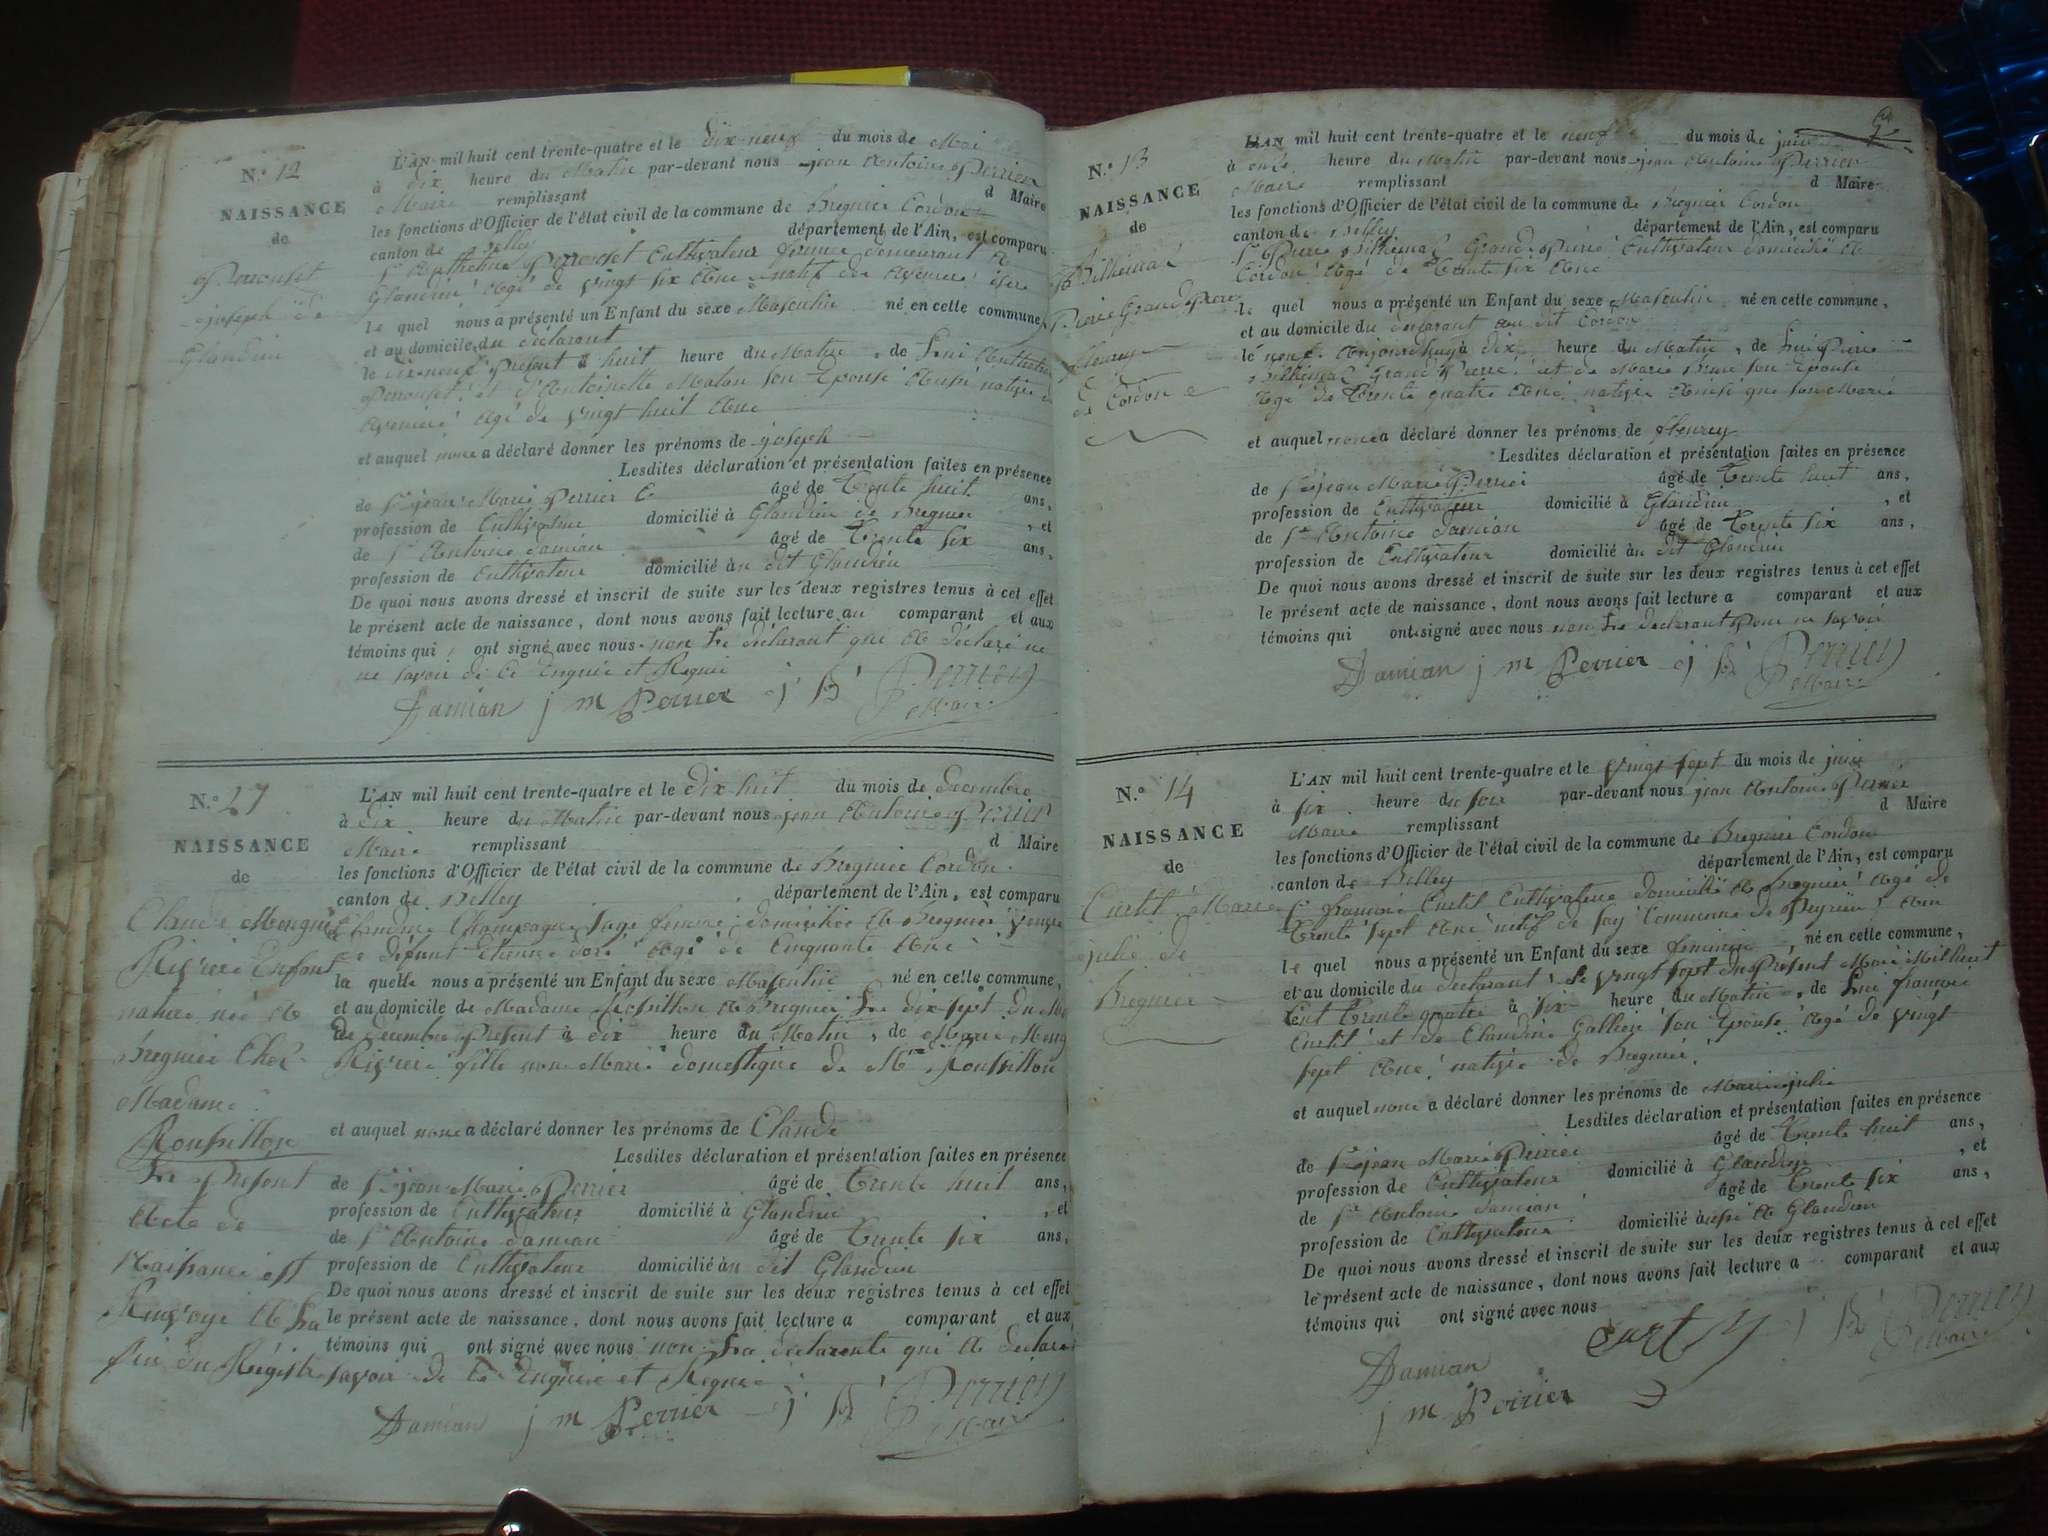 N.º 12
NAISSANCE
de
Perrouset
joseph de
Glandieu
L'AN mil huit cent trente-quatre et le dix-neuf du mois de Mai
à dix heure du Matin par-devant nous jean Antoine Perrier
Maire remplissant d Maire
les fonctions d'Officier de l'état civil de la commune de Bregnier Cordon
canton de Belley département de l'Ain, est comparu
Sr Perrouset Cultivateur demeurant a
Glandieu agé de vingt six ans natif de isere
le quel nous a présenté un Enfant du sexe Masculin né en cette commune,
et au domicile du déclarant
le dix-neuf Présent à huit heure du Matin, de Lui
Perrouset et d'Antoinette son Epouse native
agé de vingt huit ans
et auquel nous a déclaré donner les prénoms de joseph
Lesdites déclaration et présentation faites en présence
de Sr jean Marie Perrier âgé de trente huit ans,
profession de Cultivateur domicilié à Glandieu de Bregnier, et
de Sr Antoine damian âgé de trente six ans,
profession de Cultivateur domicilié au dit Glandieu
De quoi nous avons dressé et inscrit de suite sur les deux registres tenus à cet effet
le présent acte de naissance, dont nous avons fait lecture au comparant et aux
témoins qui ont signé avec nous non Le déclarant qui a déclaré ne
savoir de ce Enquis et Requis
Damian j m Perrier j A Perrier
Maire
N.º 27
NAISSANCE
de
Claude
Enfant
naturé né a
Bregnier Chez
Madame
Roussillon
Le Présent
Acte de
Naissance est
Renvoyé a La
fin du Régistre
L'AN mil huit cent trente-quatre et le dix huit du mois de decembre
à dix heure du Matin par-devant nous jean Antoine Perrier
Maire remplissant d Maire
les fonctions d'Officier de l'état civil de la commune de Bregnier Cordon
canton de Belley département de l'Ain, est comparu
Claudine Champagne Sage femme domiciliée a Bregnier veuve
de défunt étienne doré agé de Cinquante ans
la quelle nous a présenté un Enfant du sexe Masculin né en cette commune,
et au domicile de Madame Roussillon a Bregnier Le dix sept du
de decembre Présent à dix heure du Matin, de Marie
fille non Marié domestique de Me Roussillon
et auquel nous a déclaré donner les prénoms de Claude
Lesdites déclaration et présentation faites en présence
de Sr jean Marie Perrier âgé de trente huit ans,
profession de Cultivateur domicilié à Glandieu, et
de Sr Antoine damian âgé de trente six ans,
profession de Cultivateur domicilié au dit Glandieu
De quoi nous avons dressé et inscrit de suite sur les deux registres tenus à cet effet
le présent acte de naissance, dont nous avons fait lecture a comparant et aux
témoins qui ont signé avec nous non La déclarante qui a déclaré
savoir de ce Enquis et Requis
Damian j m Perrier j A Perrier
Maire
N.º 13
NAISSANCE
de
Pierre Grand Pierre
fleury
de Cordon
L'AN mil huit cent trente-quatre et le neuf du mois de juin
à onze heure du Matin par-devant nous jean Antoine Perrier
Maire remplissant d Maire
les fonctions d'Officier de l'état civil de la commune de Bregnier Cordon
canton de Belley département de l'Ain, est comparu
Sr Pierre Grand Pierre Cultivateur domicilié a
Cordon agé de trente six ans
le quel nous a présenté un Enfant du sexe Masculin né en cette commune,
et au domicile du déclarant au dit Cordon
le neuf Aujourdhuy à dix heure du Matin, de Lui Pierre
Grand Pierre et de Marie son Epouse
agé de trente quatre ans native Ainsi que son Marié
et auquel nous a déclaré donner les prénoms de fleury
Lesdites déclaration et présentation faites en présence
de Sr jean Marie Perrier âgé de trente huit ans,
profession de Cultivateur domicilié à Glandieu, et
de Sr Antoine damian âgé de trente six ans,
profession de Cultivateur domicilié au dit Glandieu
De quoi nous avons dressé et inscrit de suite sur les deux registres tenus à cet effet
le présent acte de naissance, dont nous avons fait lecture a comparant et aux
témoins qui ont signé avec nous non Le déclarant pour ne savoir
Damian j m Perrier j A Perrier
Maire
N.º 14
NAISSANCE
de
Curtil Marie
julie de
Bregnier
L'AN mil huit cent trente-quatre et le vingt sept du mois de juin
à six heure du soir par-devant nous jean Antoine Perrier
Maire remplissant d Maire
les fonctions d'Officier de l'état civil de la commune de Bregnier Cordon
canton de Belley département de l'Ain, est comparu
Sr francois Curtil Cultivateur domicilié a Bregnier agé de
trente sept ans natif de fay Commune de Peyrieu Ain
le quel nous a présenté un Enfant du sexe feminin, né en cette commune,
et au domicile du déclarant, Le vingt sept du Présent Mois Mil huit
Cent trente quatre à six heure du Matin, de Lui francois
Curtil et de Claudine son Epouse agé de vingt
sept ans native de Bregnier
et auquel nous a déclaré donner les prénoms de Marie julie
Lesdites déclaration et présentation faites en présence
de Sr jean Marie Perrier âgé de trente huit ans,
profession de Cultivateur domicilié à Glandieu, et
de Sr Antoine damian âgé de trente six ans,
profession de Cultivateur domicilié aussi a Glandieu
De quoi nous avons dressé et inscrit de suite sur les deux registres tenus à cet effet
le présent acte de naissance, dont nous avons fait lecture a comparant et aux
témoins qui ont signé avec nous
Damian j A Perrier
Maire
j m Perrier